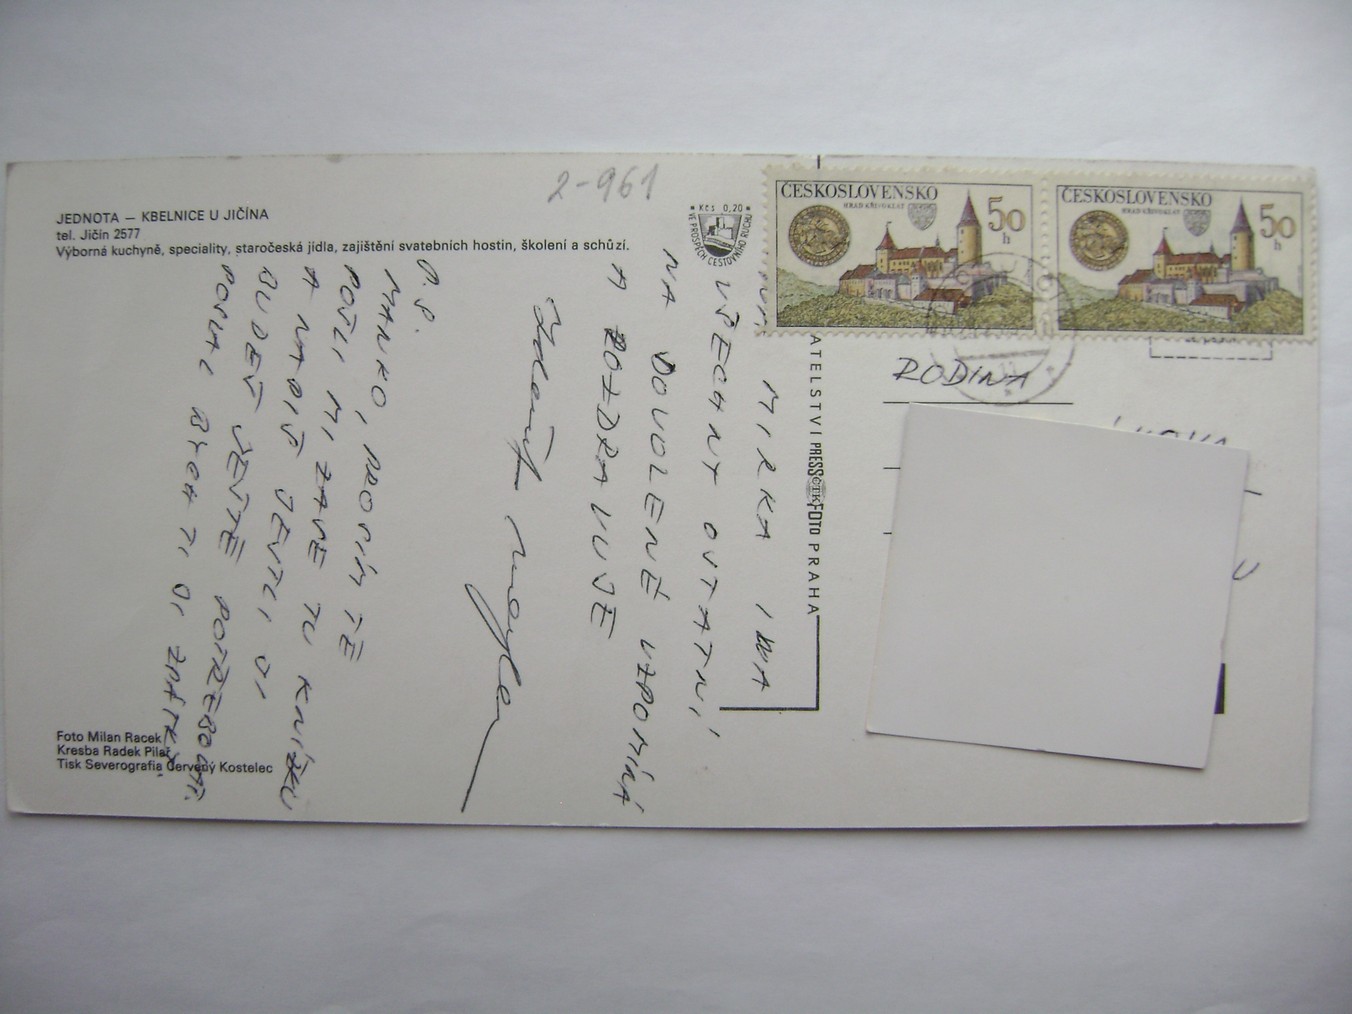 2-961
JEDNOTA — KBELNICE U JIČÍNA
tel. Jičín 2577
Výborná kuchyně, speciality, staročeská jídla, zajištění svatebních hostin, školení a schůzí.
* Kčs 0,20 *
VE PROSPĚCH CESTOVNÍHO RUCHU
ČESKOSLOVENSKO
HRAD KŘIVOKLÁT
50 h
ČESKOSLOVENSKO
HRAD KŘIVOKLÁT
50 h
MIRKA
VŠECHNY OSTATNÍ
NA DOVOLENÉ VZPOMÍNÁ
A POZDRAVUJE
Zdeněk
P.S.
MANKO, PROSÍM TĚ
POŠLI MI ZASE TU KNÍŽKU
A NAPIŠ JESTLI JI
BUDEŠ JEŠTĚ POTŘEBOVAT.
POSLAL BYCH TI JI ZPÁTKY.
ATELSTVÍ PRESSFOTO PRAHA
ČTK
RODINA
Foto Milan Racek
Kresba Radek Pilař
Tisk Severografia Červený Kostelec